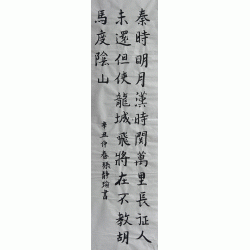 秦時明月漢時関萬里長征人
未還但使龍城飛將在不教胡
馬度陰山
辛丑仲春張静瑜書